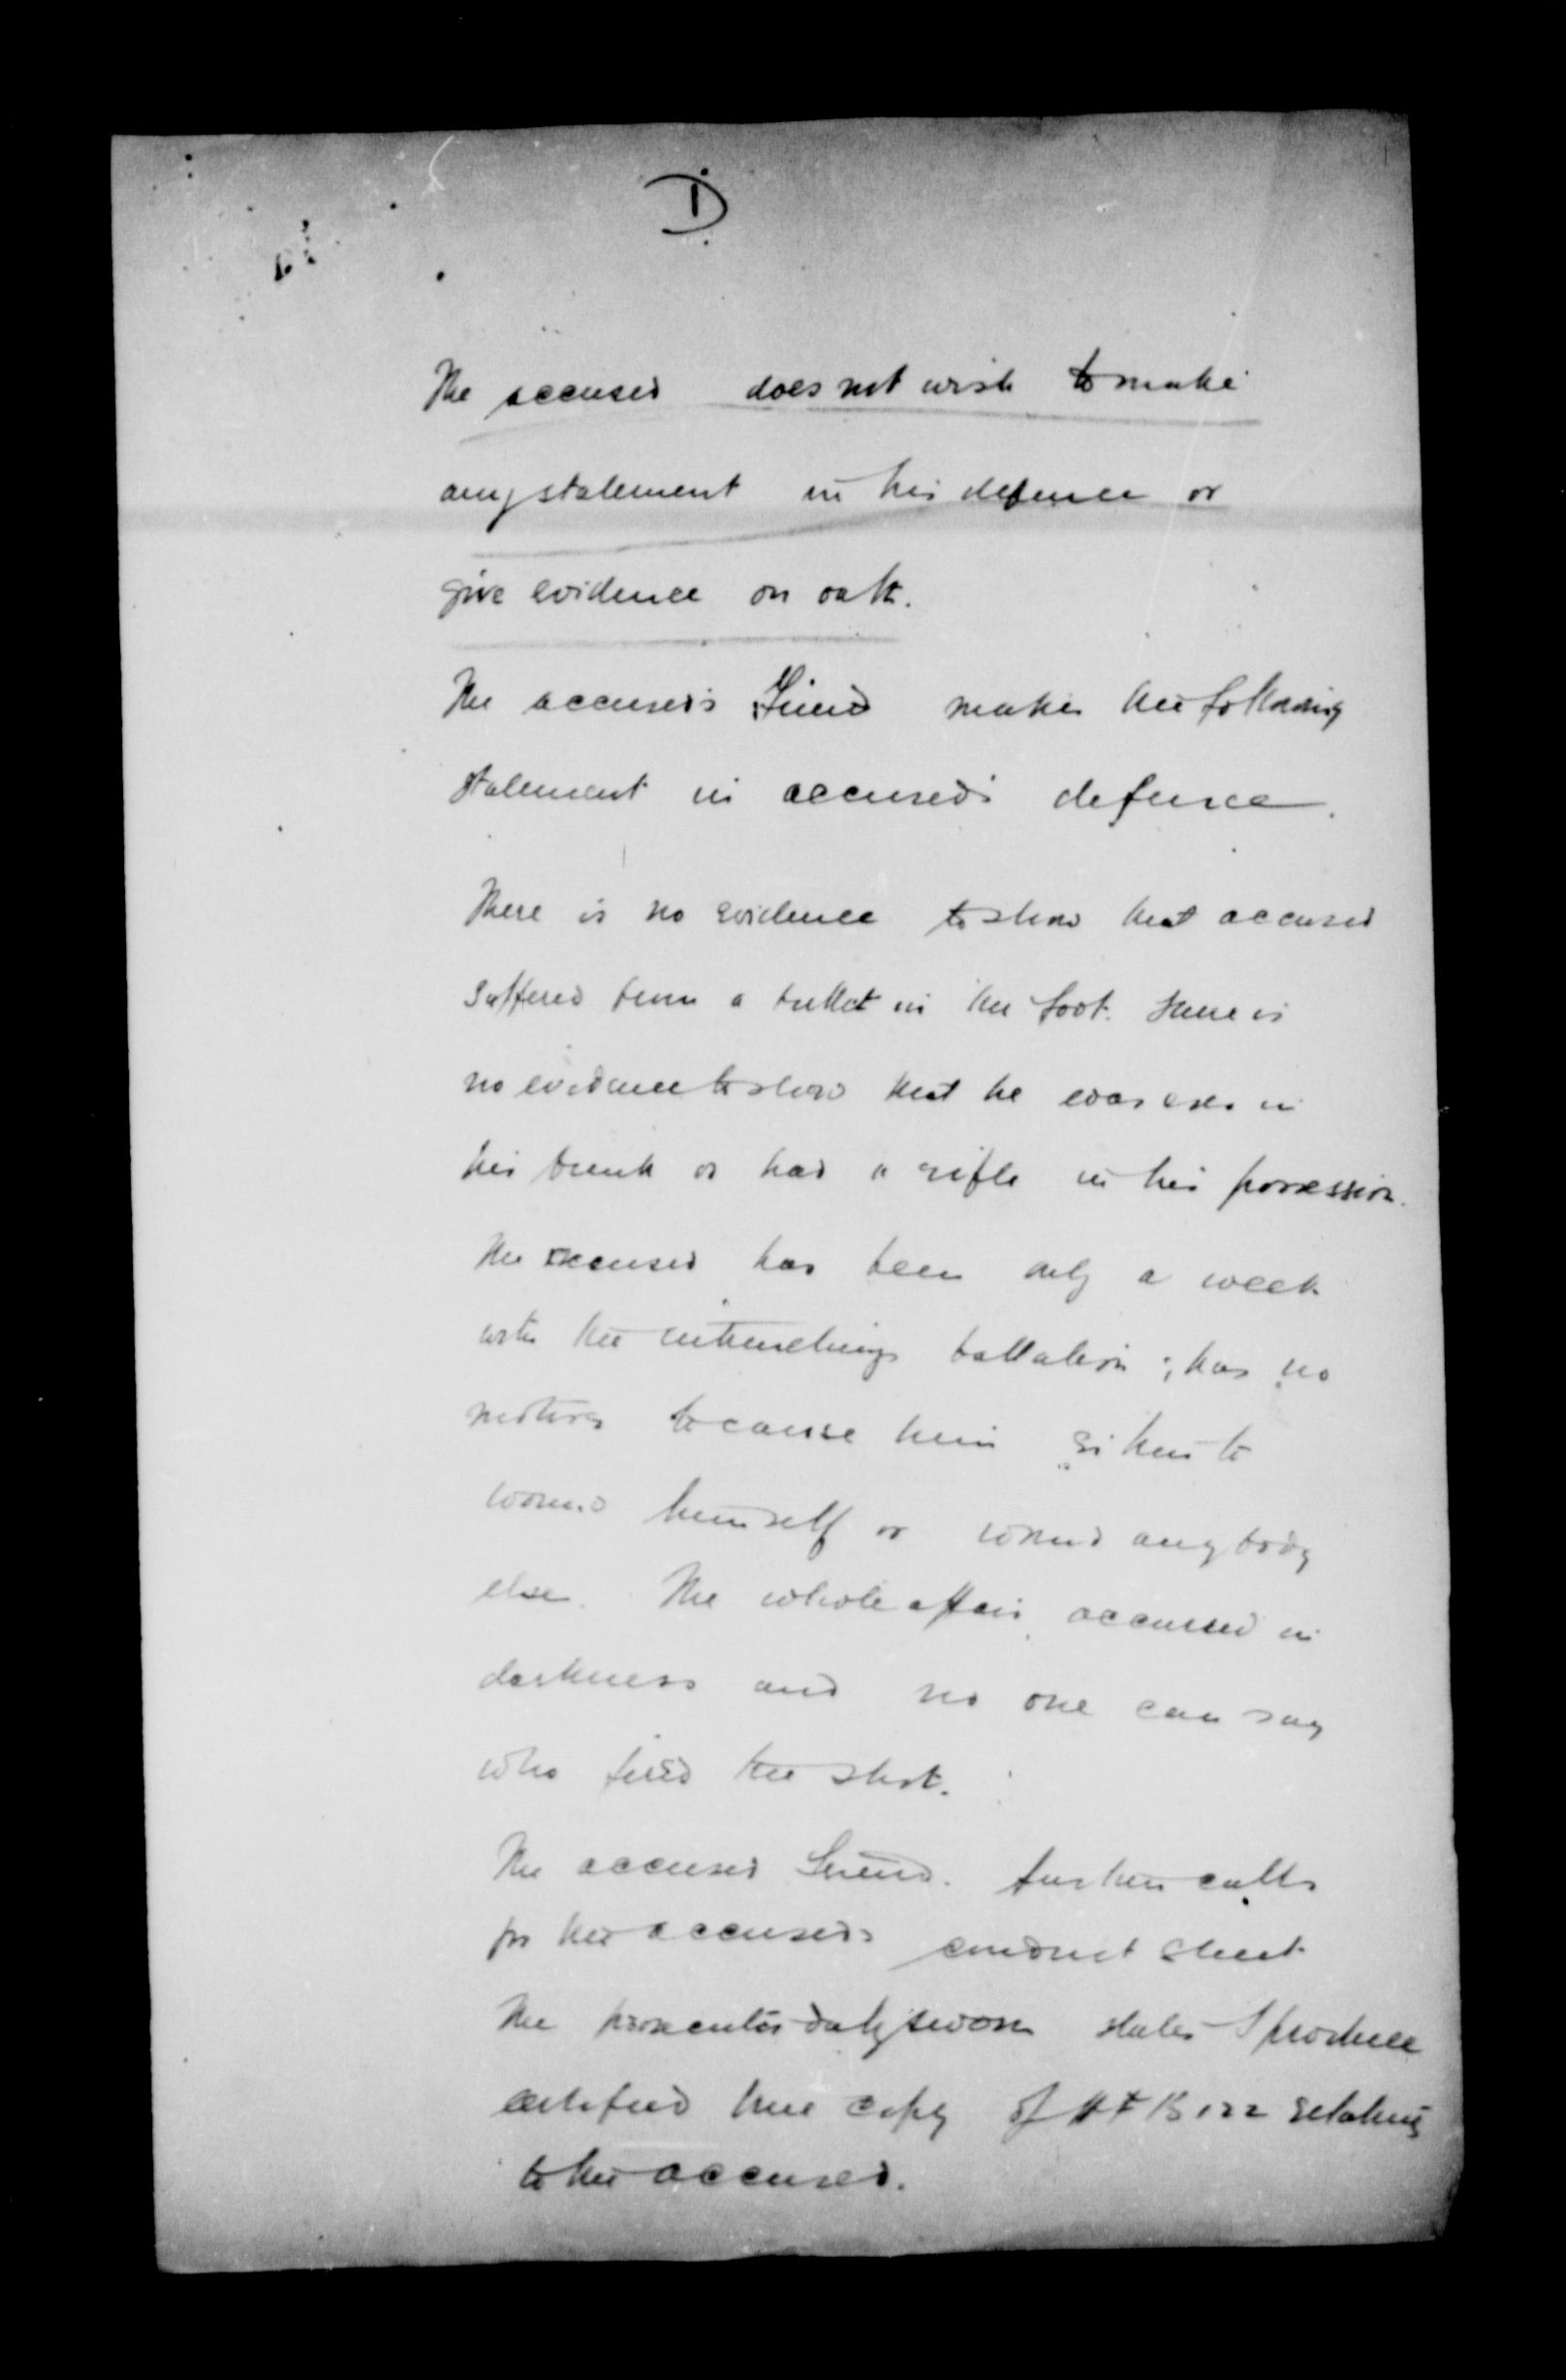 D
The accused does not wish to make
any statement in his defence or
give evidence on oath.
The accused's friend makes the following
statement in accused's defence.
There is no evidence to show that accused
suffered from a bullet in the foot. There is
no evidence to show that he was ever in
his trench or had a rifle in his possession.
The accused has been only a week
with the entrenching battalion; has no
motives to cause him either to
wound himself or wound anybody
else. The whole affair occurred in
darkness and no one can say
who fired the shot.
The accused friend. further calls
for the accused's conduct sheet
The prosecutor duly sworn states I produce
certified true copy of AF B 122 relating
to the accused.